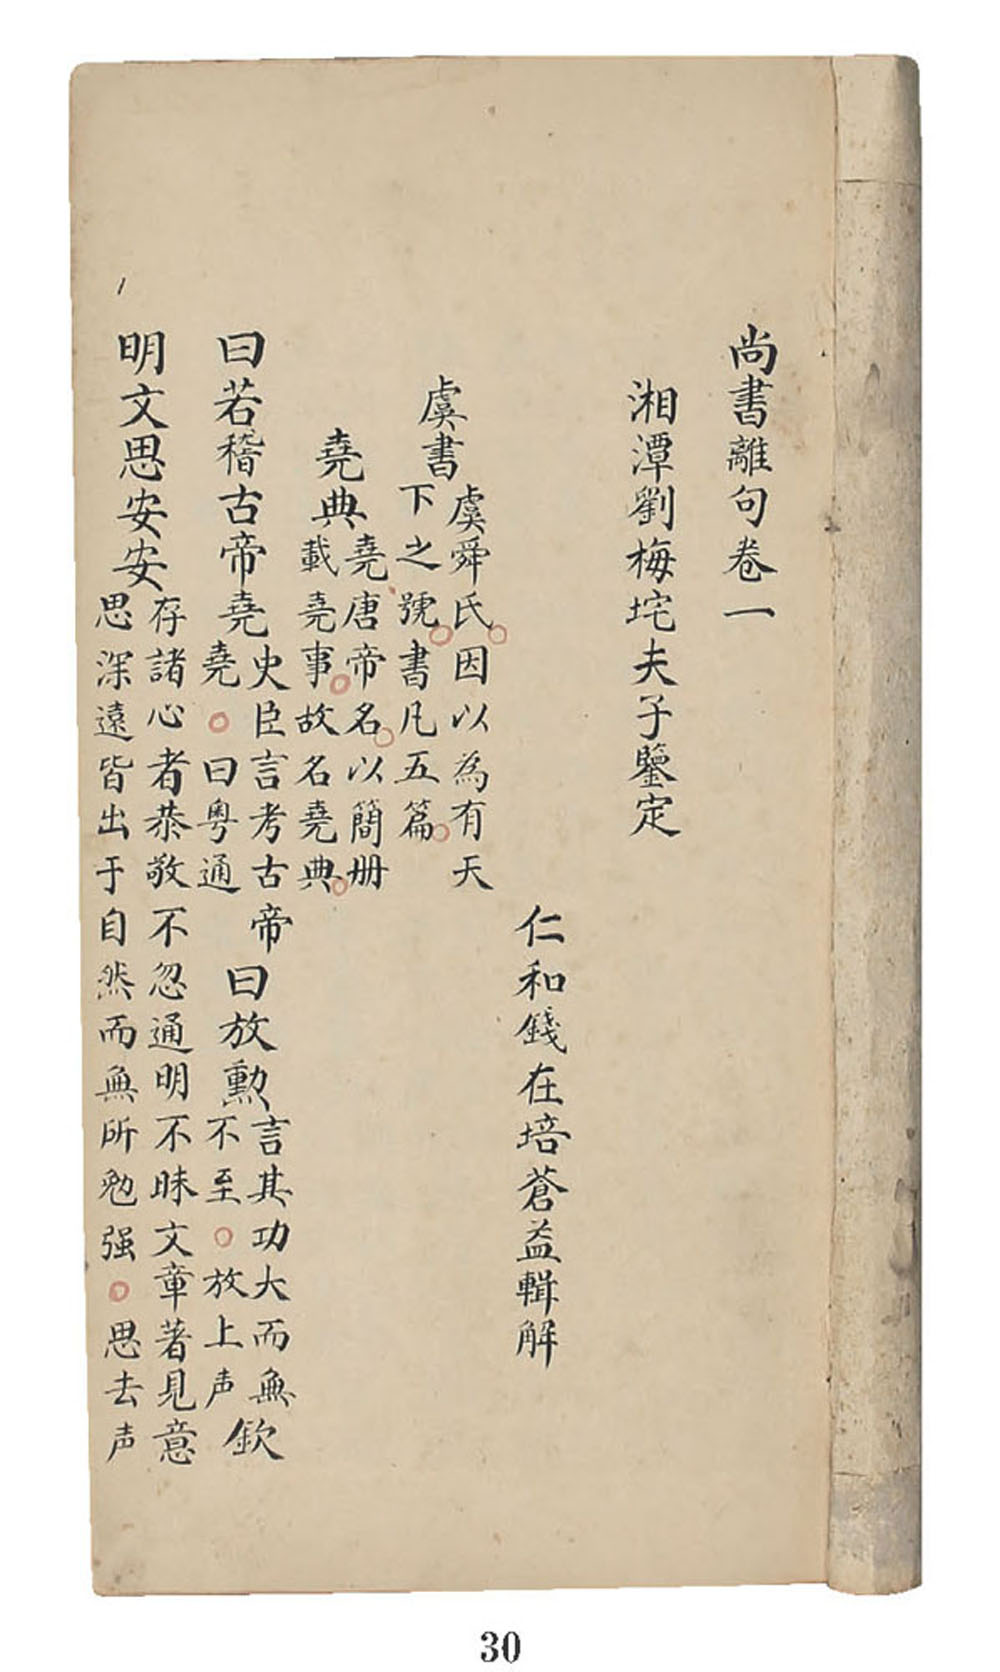 尚書離句卷一
湘潭劉梅垞夫子鑒定
仁和錢在培蒼益輯解
虞書虞舜氏因以為有天下之號書凡五篇
堯典堯唐帝名以簡册載堯事故名堯典
曰若稽古帝堯史臣言考古帝堯曰粵通曰放勲言其功大而無不至放上声欽
明文思安安存諸心者恭敬不忽通明不昧文章著見意思深遠皆出于自然而無所勉强思去声
30